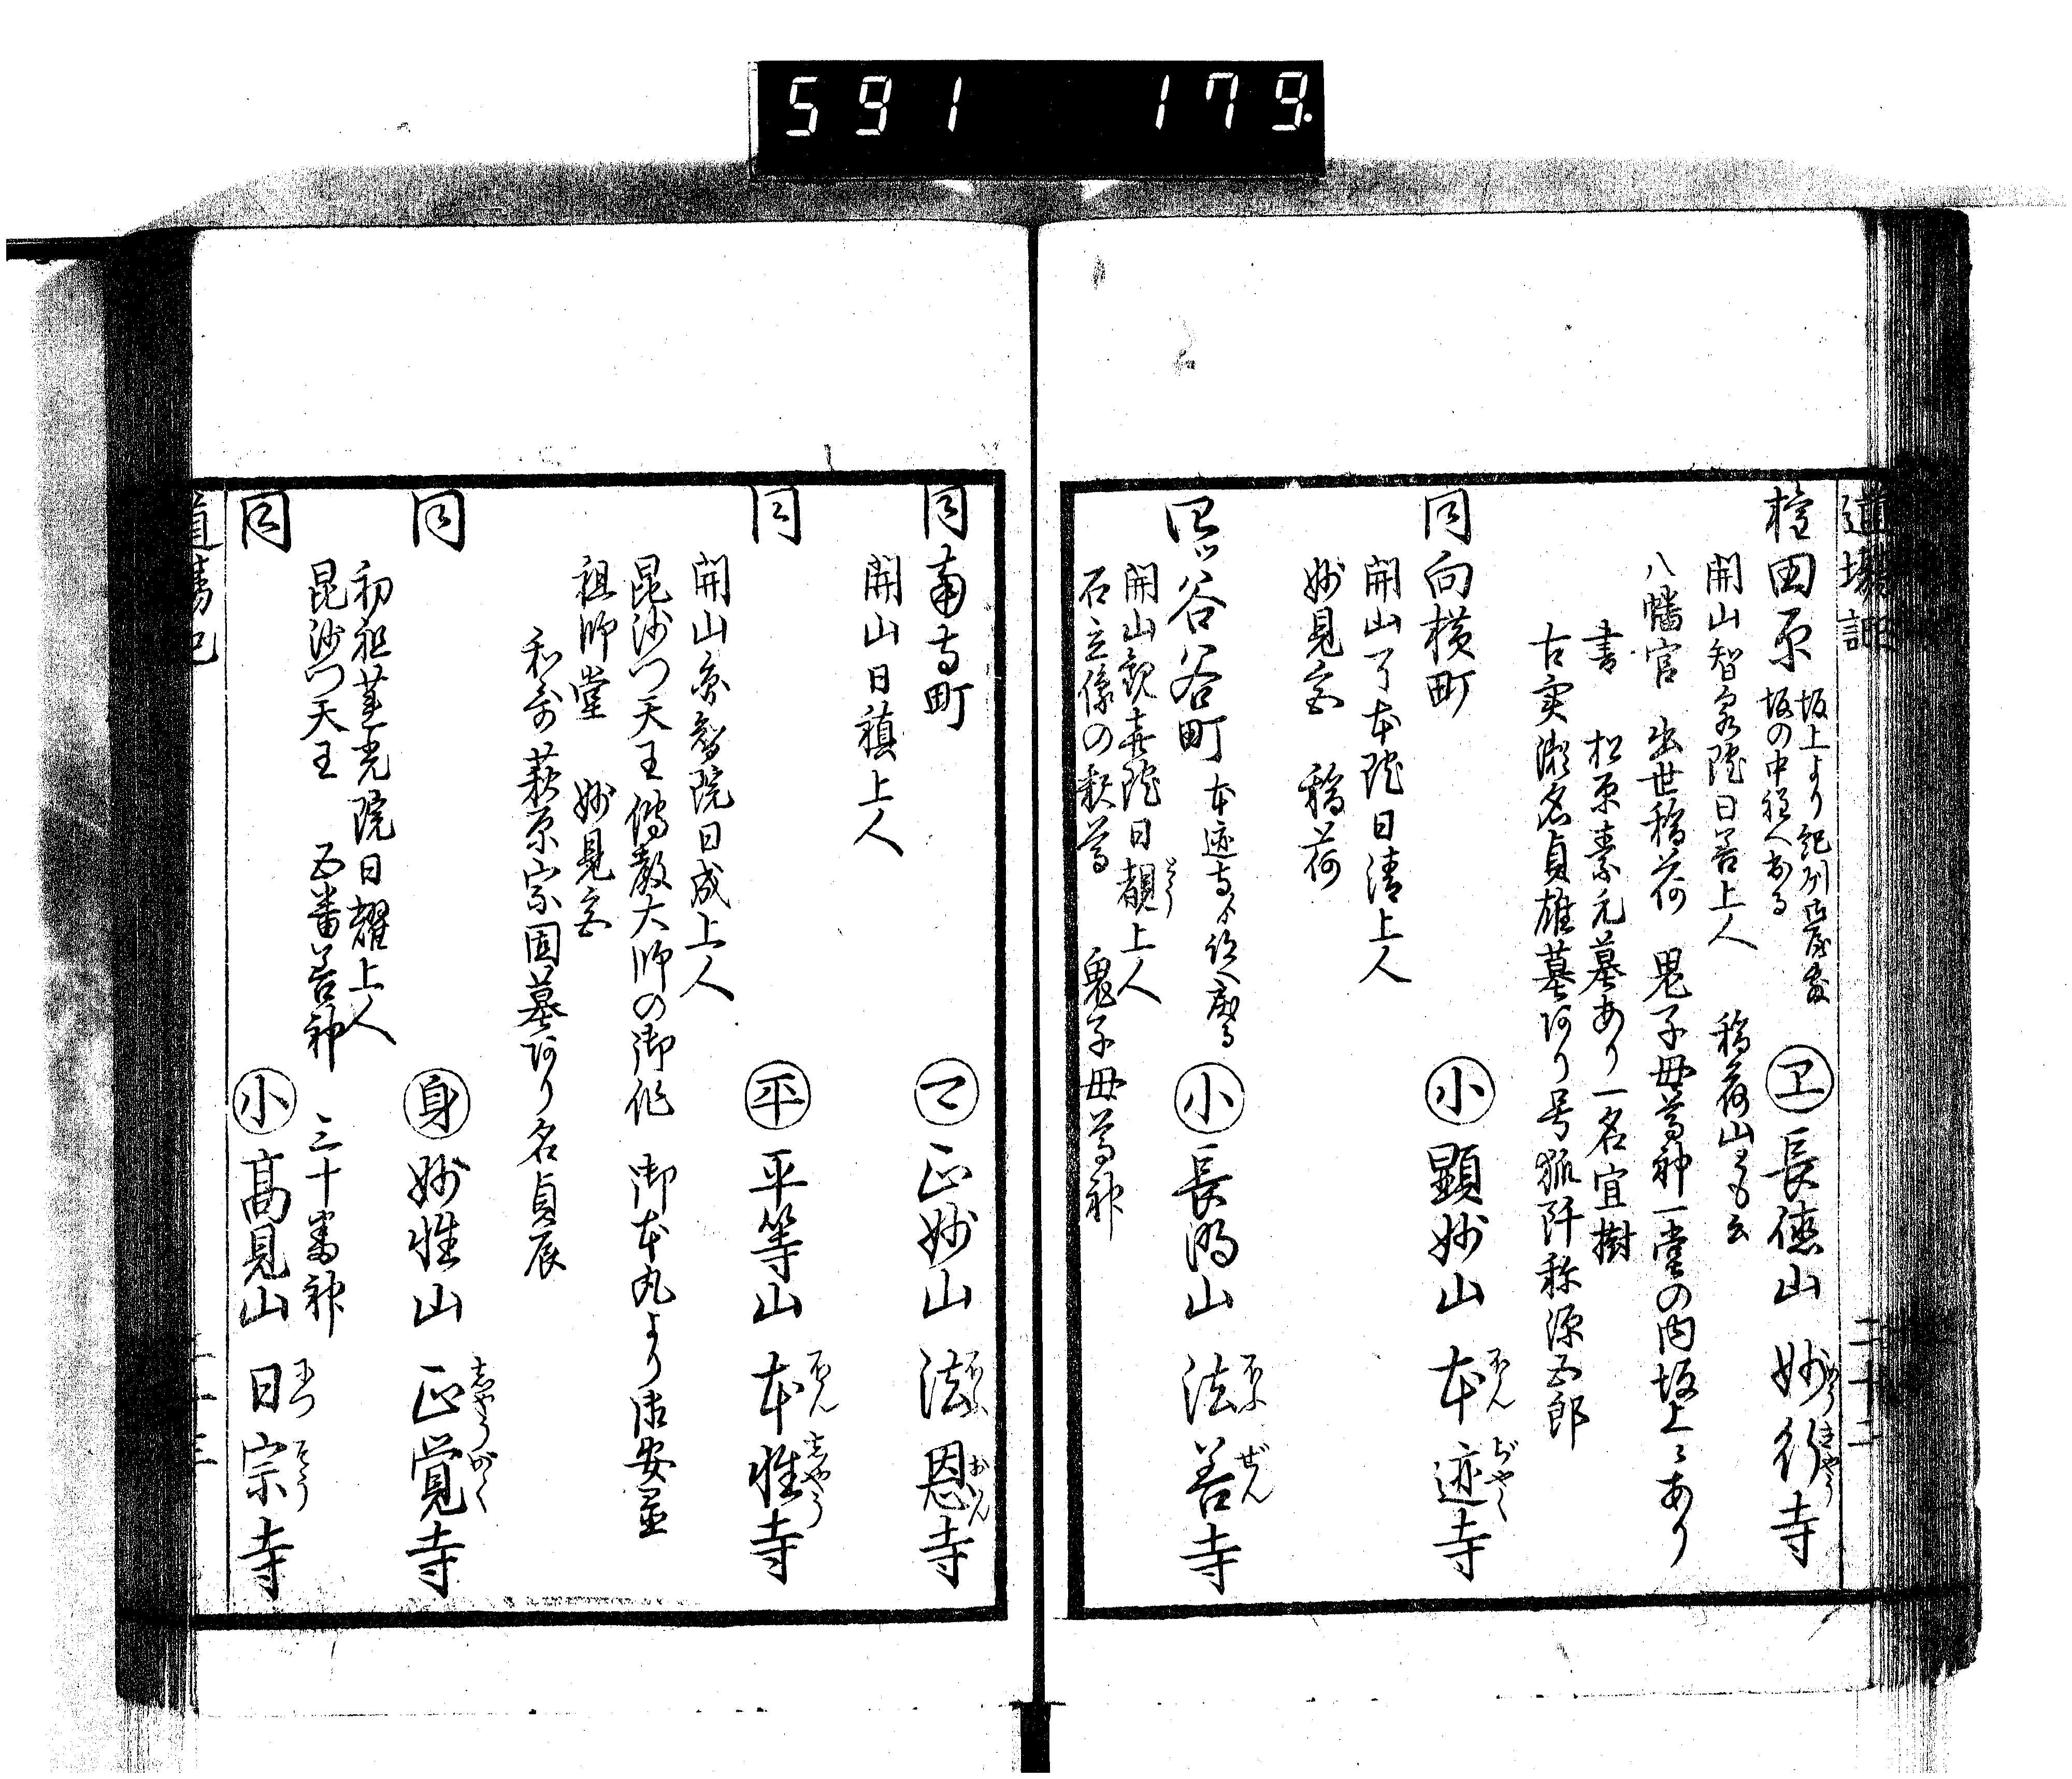 591 179
道場記 二十二
権田原
坂上より紀州御屋敷
坂の中程にある
㋓長徳山 妙行寺
めう ぎやう
開山智泉院日善上人 稲荷山とも云
八幡宮 出世稲荷 鬼子母尊神一堂の内坂上ニあり
書 松原素元墓あり一名宜樹
古実瀬名貞雄墓あり号狐阡称源五郎
同向横町 ㊥顕妙山 本迹寺
ほん じやく
開山了本院日清上人
妙見宮 稲荷
四ッ谷谷町
小 長門山 法善寺
ほふ ぜん
開山歓喜院日覩上人
石立像の釈尊 鬼子母尊神
同南寺町 正妙山 法恩寺
ほふ おん
開山日禛上人
同 平 平等山 本性寺
ほん しやう
開山京智院日成上人
毘沙門天王 伝教大師の御作 御本丸より御安置
祖師堂 妙見宮
和哥 萩原宗固墓あり名貞辰
同 身 妙性山 正覚寺
しやう がく
初祖蓮光院日耀上人
毘沙門天王 五番善神 三十番神
同 小 高見山 日宗寺
にち そう
道場記 二十三